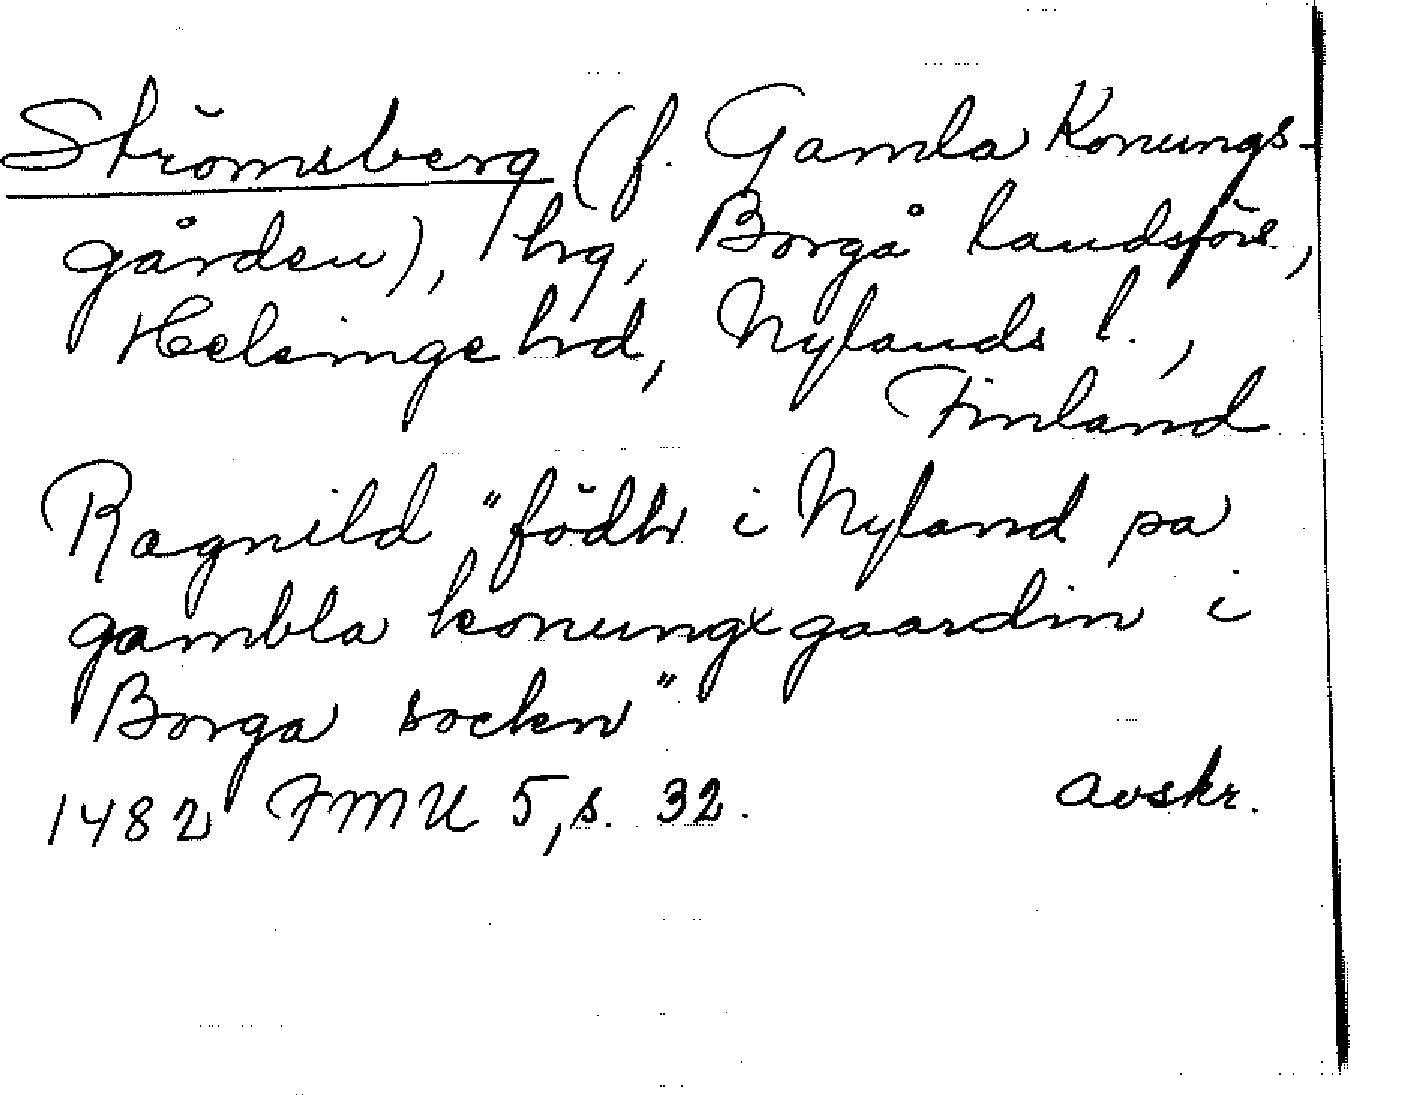 Strömsberg (f. Gamla Konungs-
gården), hrg, Borgå landsförs.,
Helsinge hrd, Nylands l.,
Finland
Ragnild "födhr i Nyland pa
gambla konungxgaardin i
Borga sockn"
1482 FMU 5, s. 32. avskr.